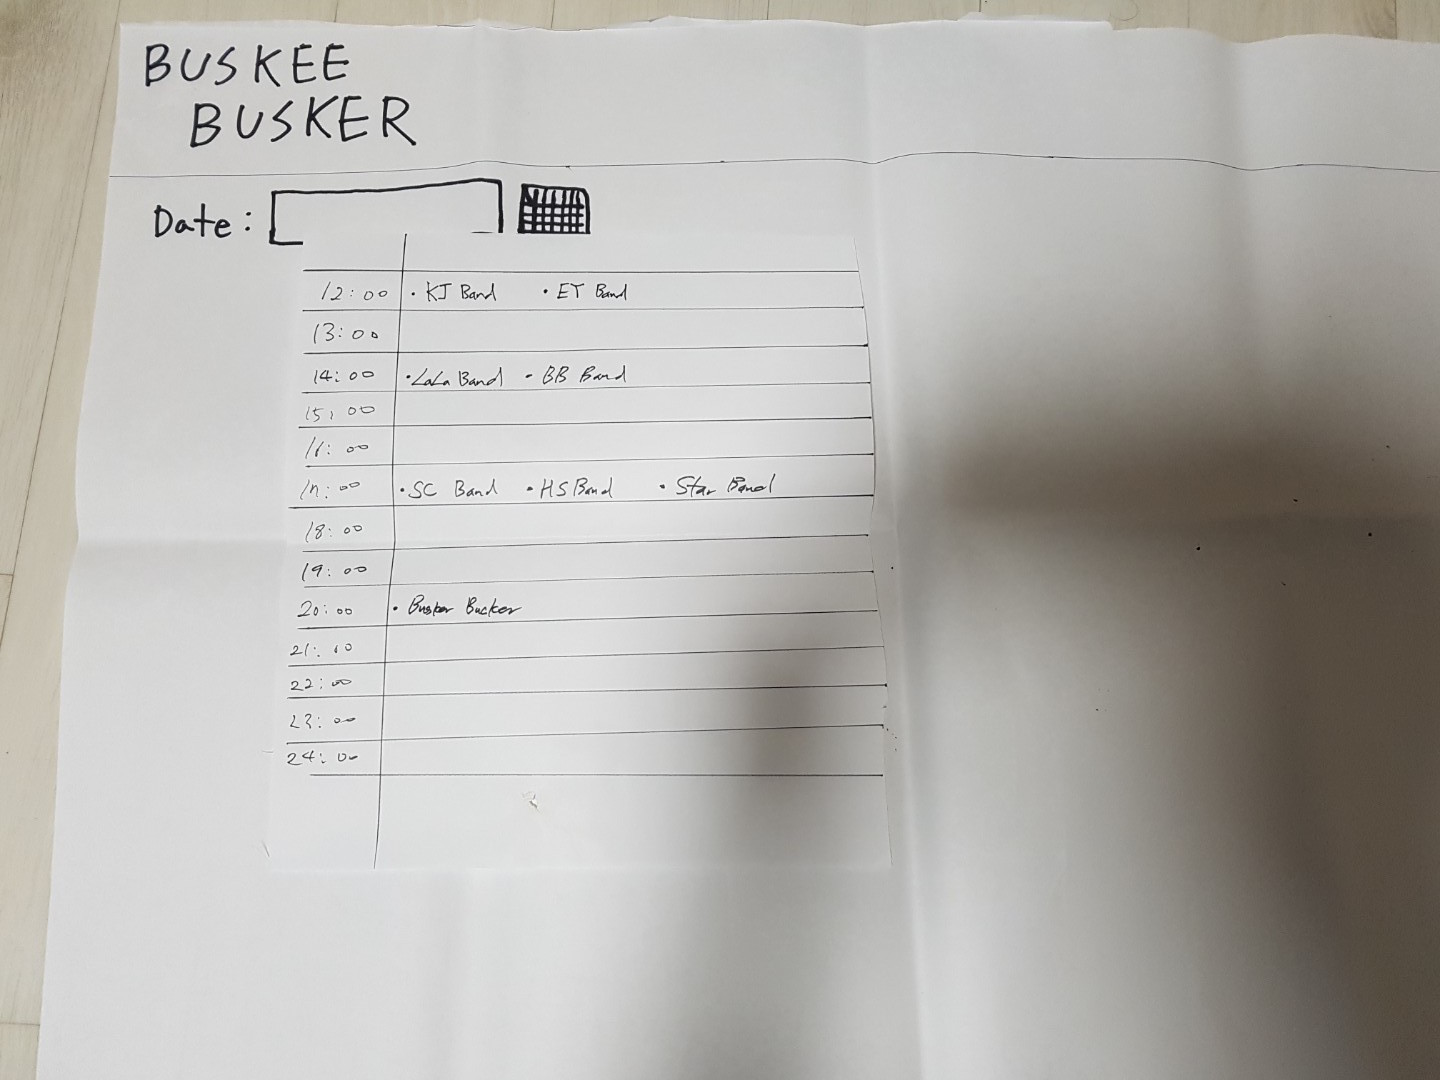 BUSKEE
BUSKER
Date:
12:00 · KJ Band · ET Band
13:00
14:00 · LaLa Band · BB Band
15:00
16:00
17:00 · SC Band · HS Band · Star Band
18:00
19:00
20:00 · Busker Bucker
21:00
22:00
23:00
24:00